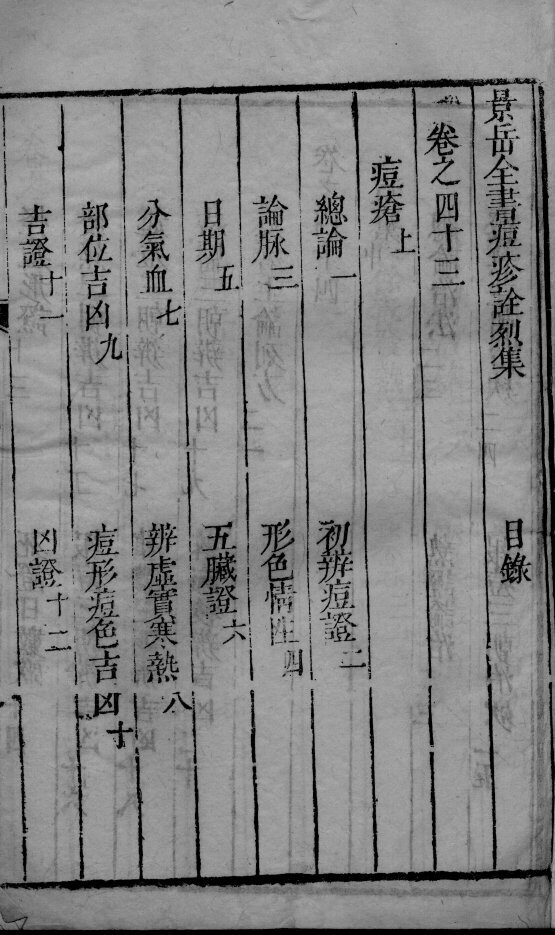 景岳全書痘疹詮烈集 目錄
卷之四十三
痘瘡上
總論一 初辨痘證二
論脉三 形色情性四
日期五 五臟證六
分氣血七 辨虛實寒熱八
部位吉凶九 痘形痘色吉凶十
吉證十一 凶證十二